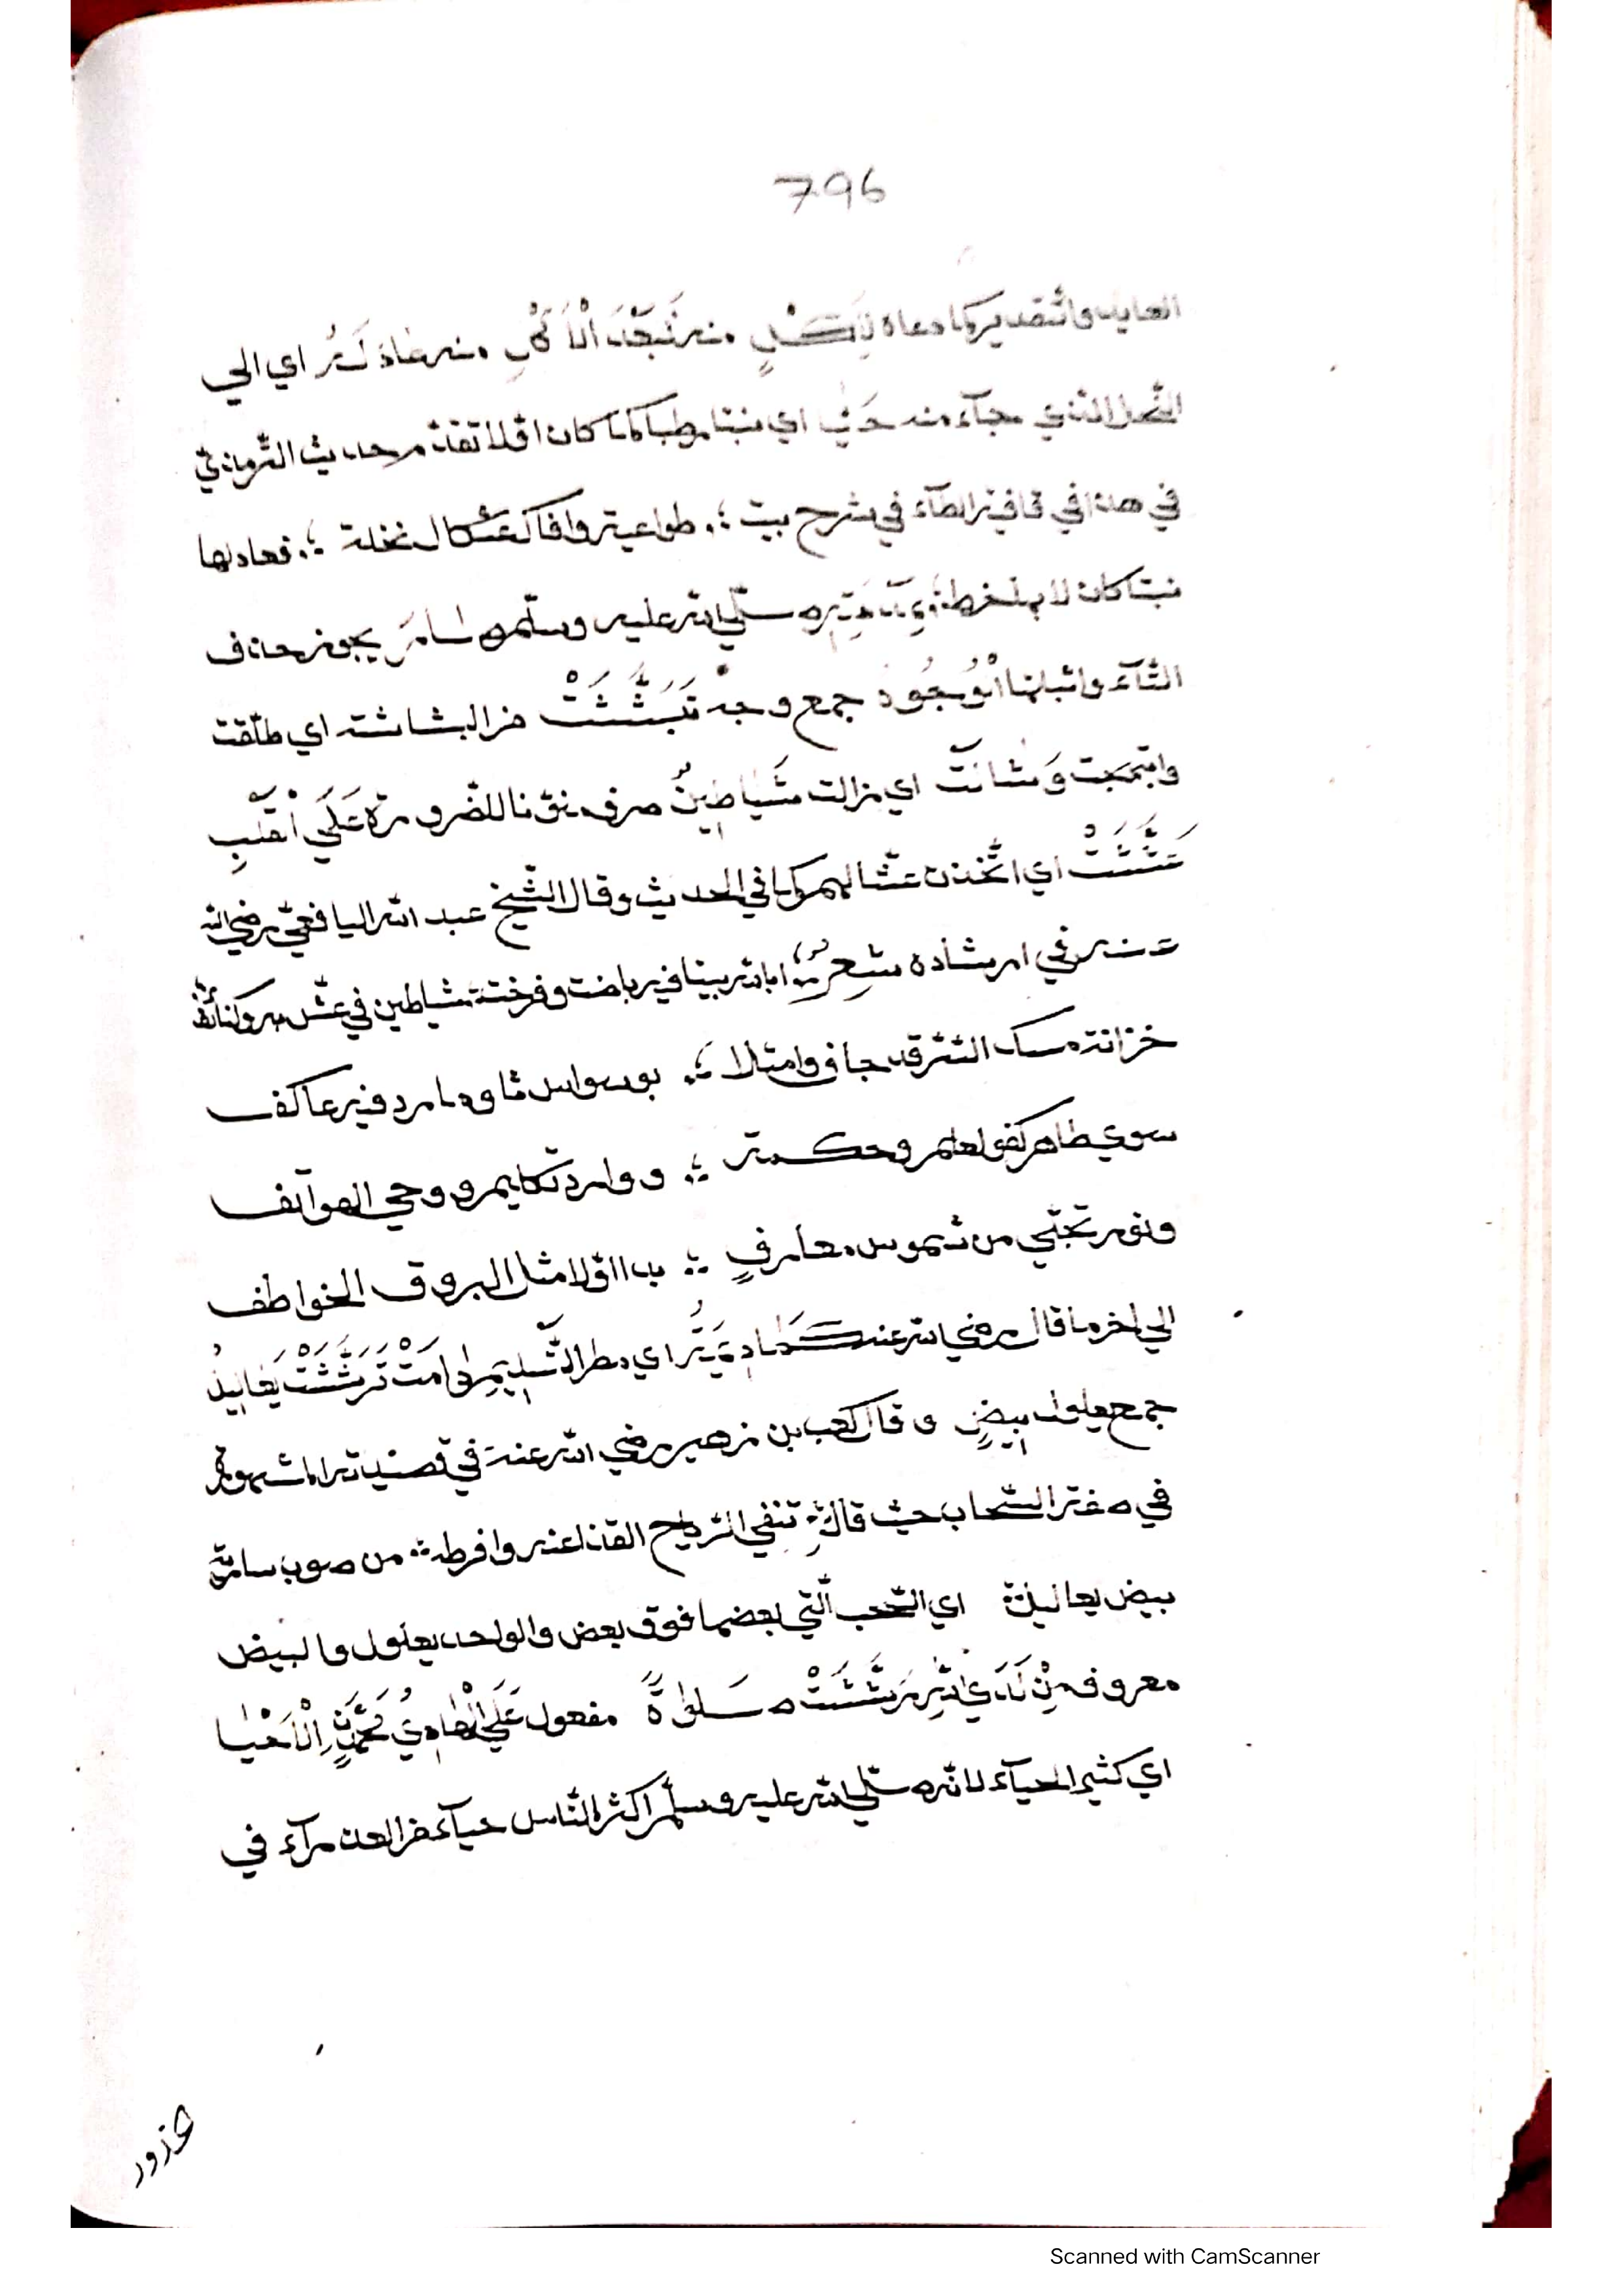 796
العايد والتقدير كما دعاه لِأَكْلٍ منه نَجْدَ الْأَكْلِ منه عاد لَهُ اي الي
النخل الذي جآء منه حَيْثُ اي نبتا رطبا كما كان اوّلا تقدّم حديث الترمذيّ
في هذا في قافية الطآء في شرح بيت ؛ طواعية وافاه عثكال نخلة ؛ فعاد لها
نبتا كان لا بالمخرط صلّي الله عليه وسلّم يجوز حذف
التآء واثباتها الْوُجُوهُ جمع وجه تَبَشَّشَتْ من البشاشة اي طلّقت
وابتهجت وَشَانَتْ اي زالت شَيَاطِينٌ صرف منوّنا للضّرورة عَلَي الْقَلْبِ
عَشَّشَتْ اي اتّخذن عشّا لهم كما في الحديث وقال الشّيخ عبد الله اليافعيّ رضي الله
عنه في ارشاده شعر ؛ ابالله بيتا فيه باضت وفرخت شياطين في عشّ
خزانة مسك الشر قد جاف وامتلا ؛ بوسواس ما وما رد فيه عاكف
سوي طاهر كفو لعلم وحكمة ؛ ووارد تكليم ووحي الهواتف
ونور تجلّي من شموس معارفٍ ؛ بدا اوّلا مثل البروق الخواطف
الي اخر ما قال رضي الله عنه كَمَا دِيمَةٍ اي مطر الدّائم رَامَتْ تَرَشَّشَتْ يَعَالِيلُ
جمع يعلول بِيضٍ وقال كعب بن زهير رضي الله عنه في قصيدته المشهورة
في صفة السّحاب حيث قال ؛ تنفي الرّياح القذا عنه وافرطه ؛ من صوب سارية
بيض يعاليل ؛ اي السّحب الّتي بعضها فوق بعض والواحد يعلول والبيض
معروف مِنْ لَدَي اللهِ رَشَّشَتْ صَلَوٰةً مفعول عَلَي الْهَادِي مُحَمَّدٍ الْاَحْيَا
اي كثير الحيآء لانّه صلّي الله عليه وسلّم اكثر النّاس حيآء من العذرآء في
خدور
Scanned with CamScanner